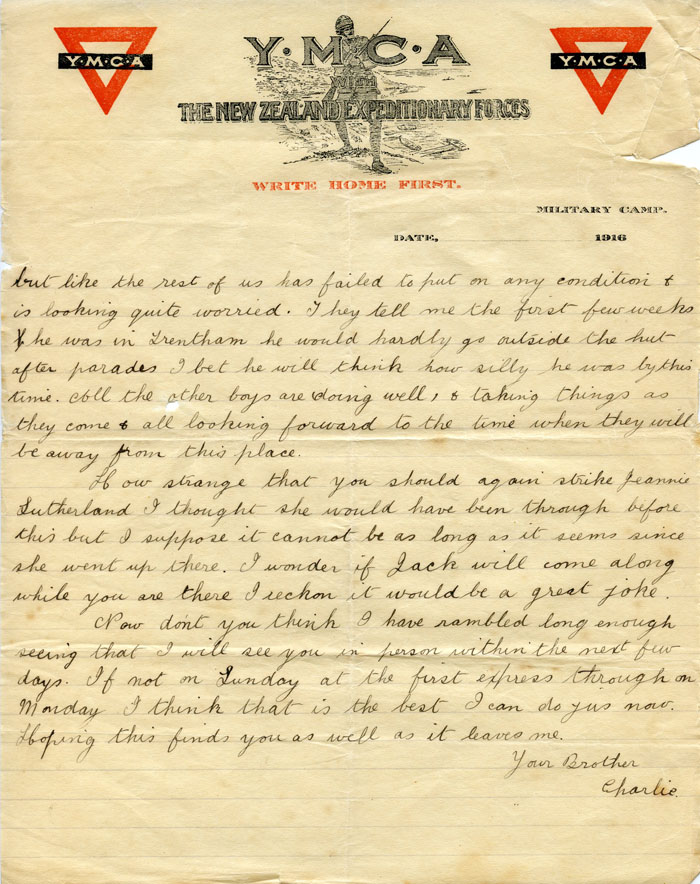 Y·M·C·A
Y·M·C·A
Y·M·C·A
WITH
THE NEW ZEALAND EXPEDITIONARY FORCES
WRITE HOME FIRST.
MILITARY CAMP.
DATE, 1916
but like the rest of us has failed to put on any condition &
is looking quite worried. They tell me the first few weeks
he was in Trentham he would hardly go outside the hut
after parades I bet he will think how silly he was by this
time. All the other boys are doing well, & taking things as
they come & all looking forward to the time when they will
be away from this place.
How strange that you should again strike Jeannie
Sutherland I thought she would have been through before
this but I suppose it cannot be as long as it seems since
she went up there. I wonder if Jack will come along
while you are there I reckon it would be a great joke.
Now dont you think I have rambled long enough
seeing that I will see you in person within the next few
days. If not on Sunday at the first express through on
Monday I think that is the best I can do jus now.
Hoping this finds you as well as it leaves me.
Your Brother
Charlie.